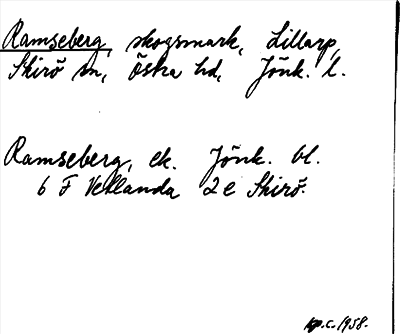 Ramseberg, skogsmark, Lillarp,
Skirö sn, Östra hd, Jönk. l.
Ramseberg, ek. Jönk. bl.
6 F Vetlanda 2 e Skirö.
1958.